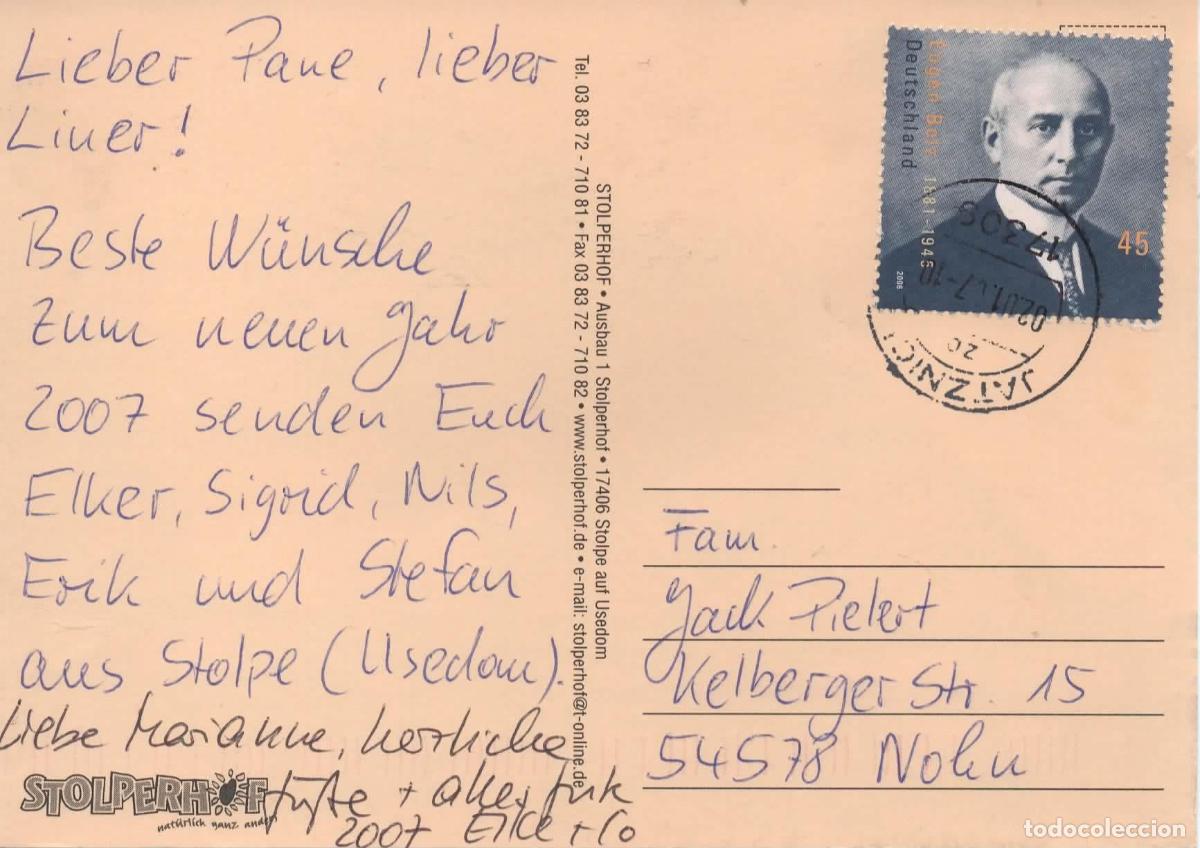 Lieber Pane, lieber
Liner!
Beste Wünsche
zum neuen Jahr
2007 senden Euch
Elker, Sigrid, Nils,
Erik und Stefan
aus Stolpe (Usedom).
Liebe Marianne, herzliche
Grüße + alles Gute
2007 Elke + Co
STOLPERHOF
natürlich ganz anders
STOLPERHOF • Ausbau 1 Stolperhof • 17406 Stolpe auf Usedom
Tel. 03 83 72 - 710 81 • Fax 03 83 72 - 710 82 • www.stolperhof.de • e-mail: stolperhof@t-online.de
Eugen Bolz 1881-1945
Deutschland
45
2006
17309
02.01.07-10
20
JATZNICK
Fam.
Jack Pielert
Kelberger Str. 15
54578 Nohn
todocoleccion